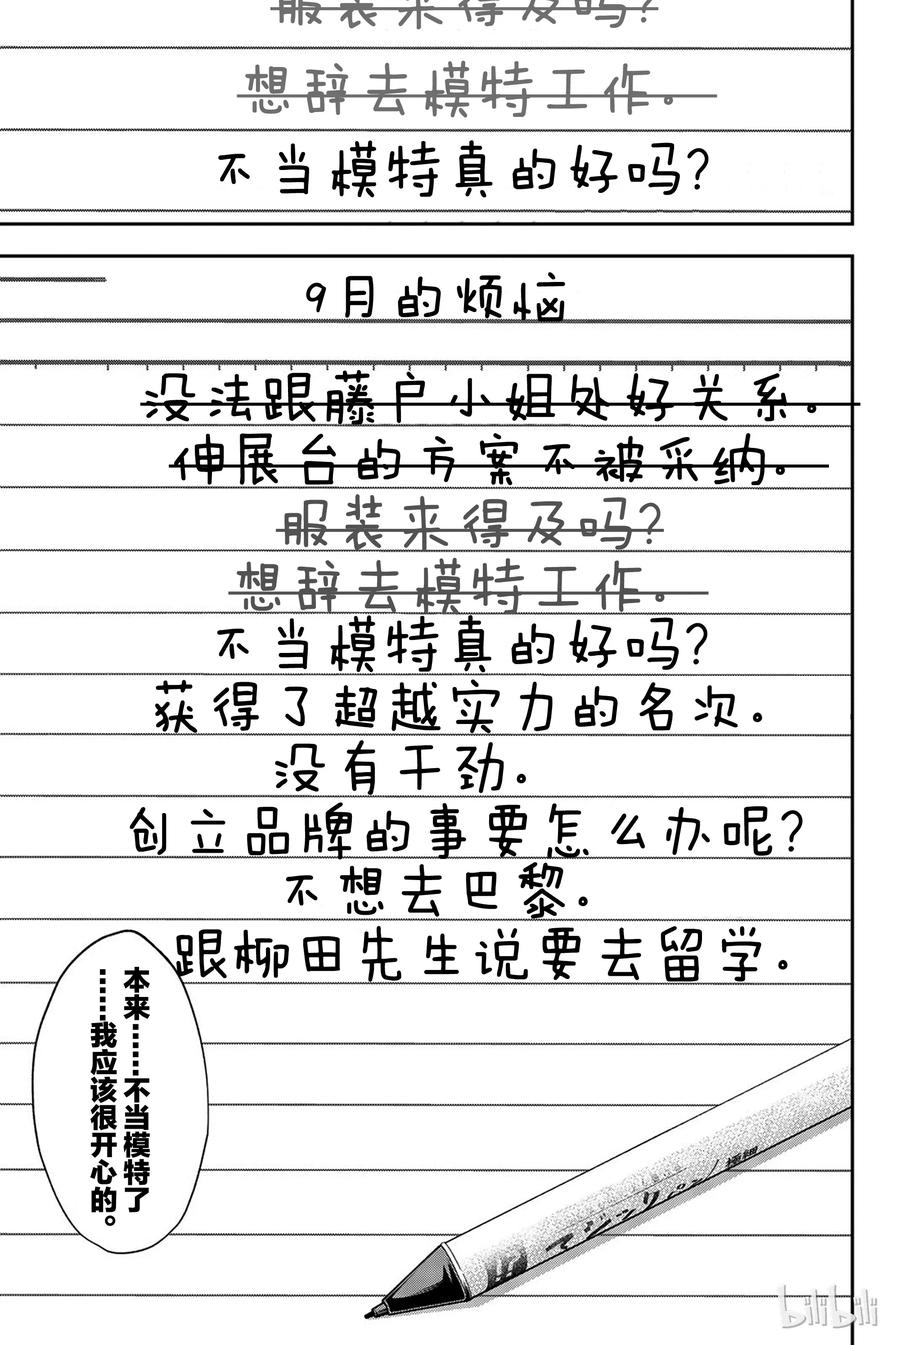 服装来得及吗?
想辞去模特工作。
不当模特真的好吗?
9月的烦恼
没法跟藤户小姐处好关系。
伸展台的方案不被采纳。
服装来得及吗?
想辞去模特工作。
不当模特真的好吗?
获得了超越实力的名次。
没有干劲。
创立品牌的事要怎么办呢?
不想去巴黎。
跟柳田先生说要去留学。
本来……不当模特了
……我应该很开心的。
bilibili